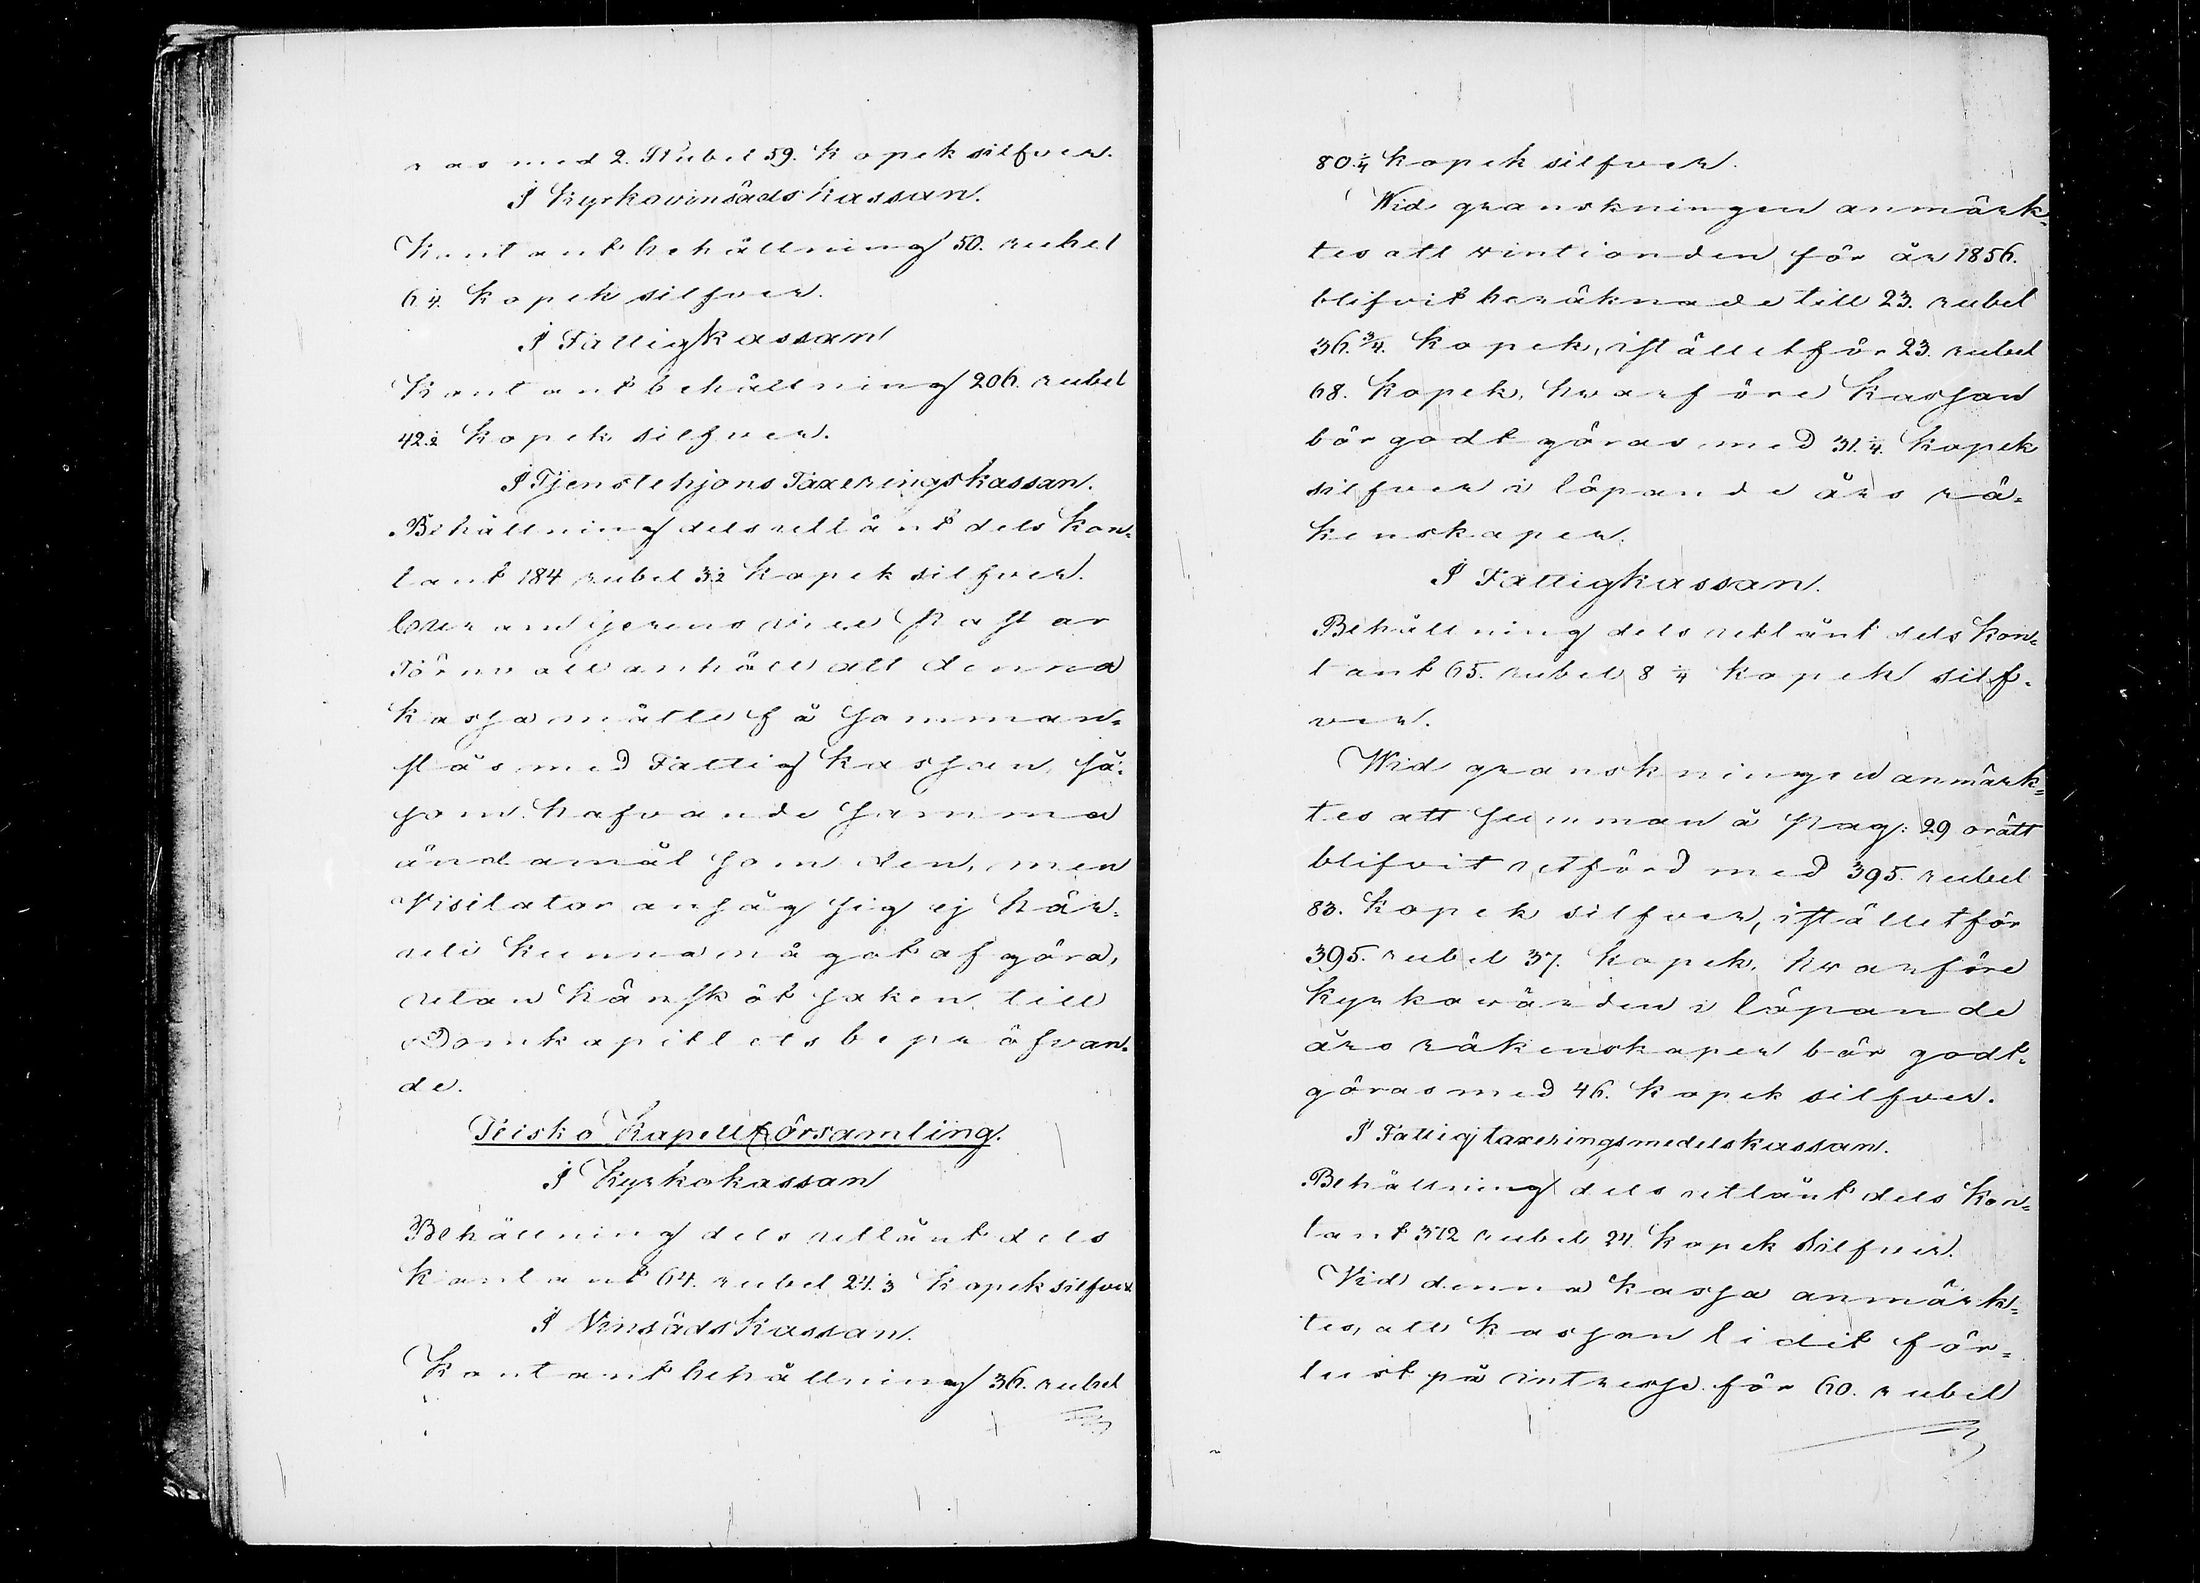 ras med 2. Rubel 59. kopek silfver.
I Kyrkovinsädskassan.
Kontant behållning 50. rubel
64. kopek silfver.
I Fattigkassan
Kontant behållning 206. rubel
42½ kopek silfver.
I Tjenstehjons Taxeringskassan.
Behållning dels utlånt dels kon-
tant 184 rubel 32 kopek silfver.
Törnvall anhöll att denna
kassa måtte få samman-
slås med Fattigkassan, så-
som hafvande samma
ändamål som den, men
Visitator ansåg sig ej här-
uti kunna något afgöra,
utan hänsköt saken till
Domkapitlets bepröfvan-
de.
Teisko Kapellförsamling.
I Kyrkokassan
Behållning dels utlånt dels
kontant 64. rubel 24.3 kopek silfver
I Vinsädskassan.
Kontant behållning 36. rubel
80.¼ kopek silfver.
Wid granskningen anmärk-
tes att vintionden för år 1856.
blifvit beräknade till 23. rubel
36.¾. kopek, istället för 23. rubel
68. kopek, hvarföre kassan
bör godtgöras med 31.¼. kopek
silfver i löpande års rä-
kenskaper.
I Fattigkassan.
Behållning dels utlånt dels kon-
tant 65. rubel 8 ¼ kopek silf-
ver.
Wid granskningen anmärk-
tes att summan å pag: 29 orätt
blifvit utförd med 395. rubel
83. kopek silfver, istället för
395. rubel 37. kopek, hvarföre
kyrkovärden i löpande
års räkenskaper bör godt-
göras med 46. kopek silfver.
I Fattigtaxeringsmedelskassan.
Behållning dels utlånt dels kon-
tant 372 rubel 24. kopek silfver.
Vid denna kassa anmärk-
tes, att kassan lidit för-
lust på intresse för 60. rubel